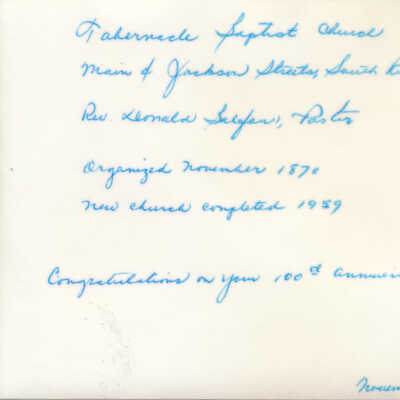 Tabernacle Baptist Church
Main & Jackson Streets, South
Rev. Donald Pastor
Organized November 1870
New church completed 1959
Congratulations on your 100th